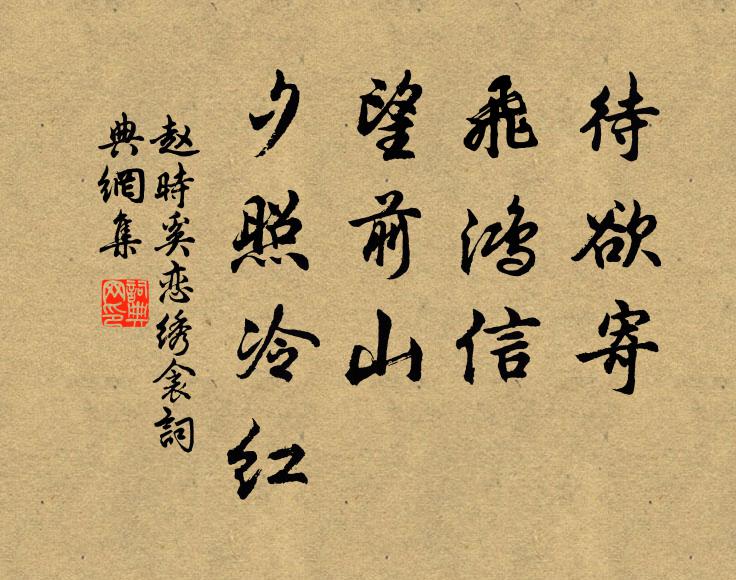 待欲寄
飛鴻信
望前山
夕照冷红
赵時奚恋绣衾詞
典網集
詞典
网印